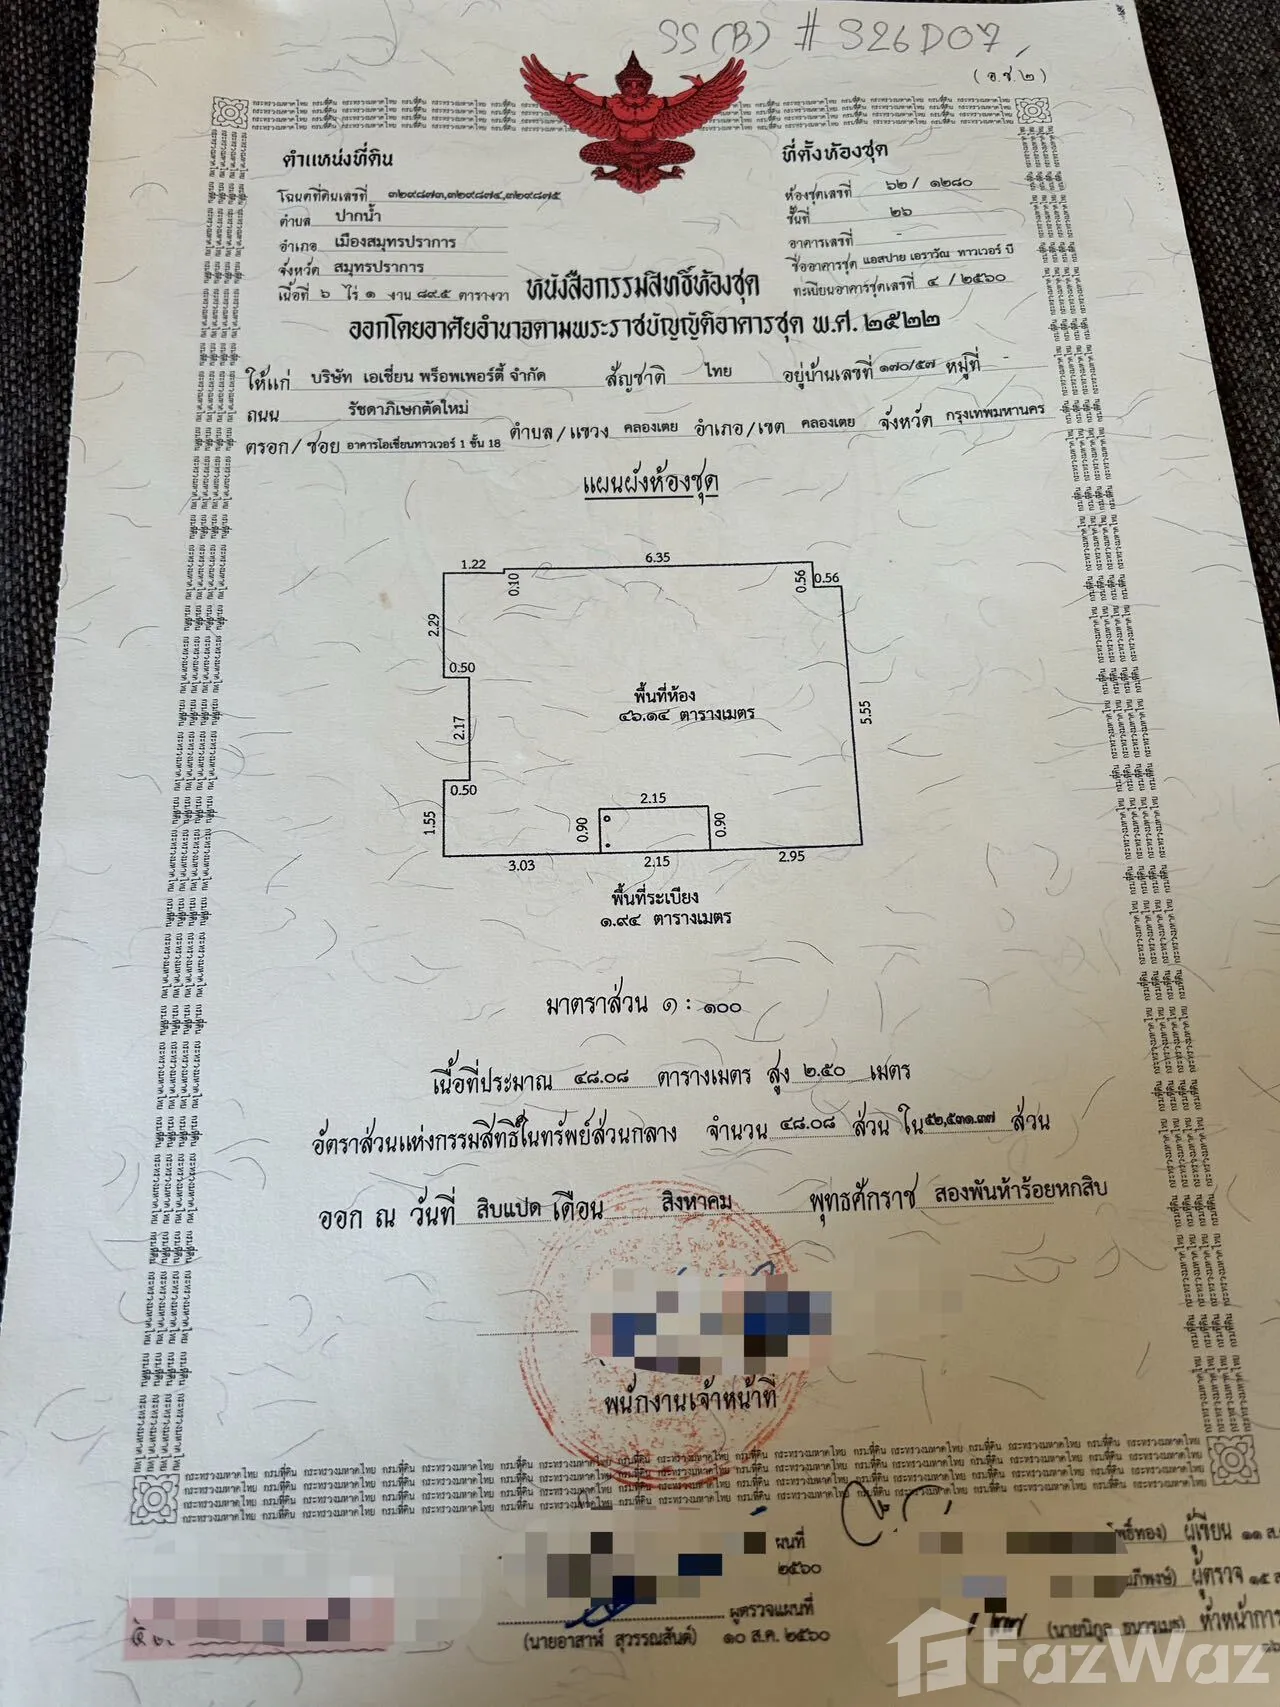 SS (B) # S26D07
(อ.ช.๒)
ตำแหน่งที่ดิน
โฉนดที่ดินเลขที่ ๓๒๙๘๗๓,๓๒๙๘๗๔,๓๒๙๘๗๕
ตำบล ปากน้ำ
อำเภอ เมืองสมุทรปราการ
จังหวัด สมุทรปราการ
เนื้อที่ ๖ ไร่ ๑ งาน ๘๙.๕ ตารางวา
ที่ตั้งห้องชุด
ห้องชุดเลขที่ ๖๒/ ๑๒๘๐
ชั้นที่ ๒๖
อาคารเลขที่ -
ชื่ออาคารชุด แอสปาย เอราวัณ ทาวเวอร์ บี
ทะเบียนอาคารชุดเลขที่ ๔ / ๒๕๖๐
หนังสือกรรมสิทธิ์ห้องชุด
ออกโดยอาศัยอำนาจตามพระราชบัญญัติอาคารชุด พ.ศ. ๒๕๒๒
ให้แก่ บริษัท เอเชี่ยน พร็อพเพอร์ตี้ จำกัด สัญชาติ ไทย อยู่บ้านเลขที่ ๑๗๐/๕๗ หมู่ที่ -
ถนน รัชดาภิเษกตัดใหม่
ตรอก/ซอย อาคารโอเชี่ยนทาวเวอร์ 1 ชั้น 18 ตำบล/แขวง คลองเตย อำเภอ/เขต คลองเตย จังหวัด กรุงเทพมหานคร
แผนผังห้องชุด
1.22
6.35
0.10
0.56
0.56
2.29
0.50
2.17
พื้นที่ห้อง
๔๖.๑๔ ตารางเมตร
5.55
0.50
1.55
2.15
0.90
0.90
3.03
2.15
2.95
พื้นที่ระเบียง
๑.๙๔ ตารางเมตร
มาตราส่วน ๑ : ๑๐๐
เนื้อที่ประมาณ ๔๘.๐๘ ตารางเมตร สูง ๒.๕๐ เมตร
อัตราส่วนแห่งกรรมสิทธิ์ในทรัพย์ส่วนกลาง จำนวน ๔๘.๐๘ ส่วน ใน ๕๒,๕๓๑.๓๗ ส่วน
ออก ณ วันที่ สิบแปด เดือน สิงหาคม พุทธศักราช สองพันห้าร้อยหกสิบ
พนักงานเจ้าหน้าที่
กระทรวงมหาดไทย กรมที่ดิน กระทรวงมหาดไทย กรมที่ดิน
ผนที่
๒๕๖๐
ผู้ตรวจแผนที่
(นายอาสาฬ สุวรรณสันต์) ๑๐ ส.ค. ๒๕๖๐
โพธิ์ทอง) ผู้เขียน ๑๑ ส.
ผู้ตรวจ ๑๕ ส
หัวหน้าการ
FazWaz